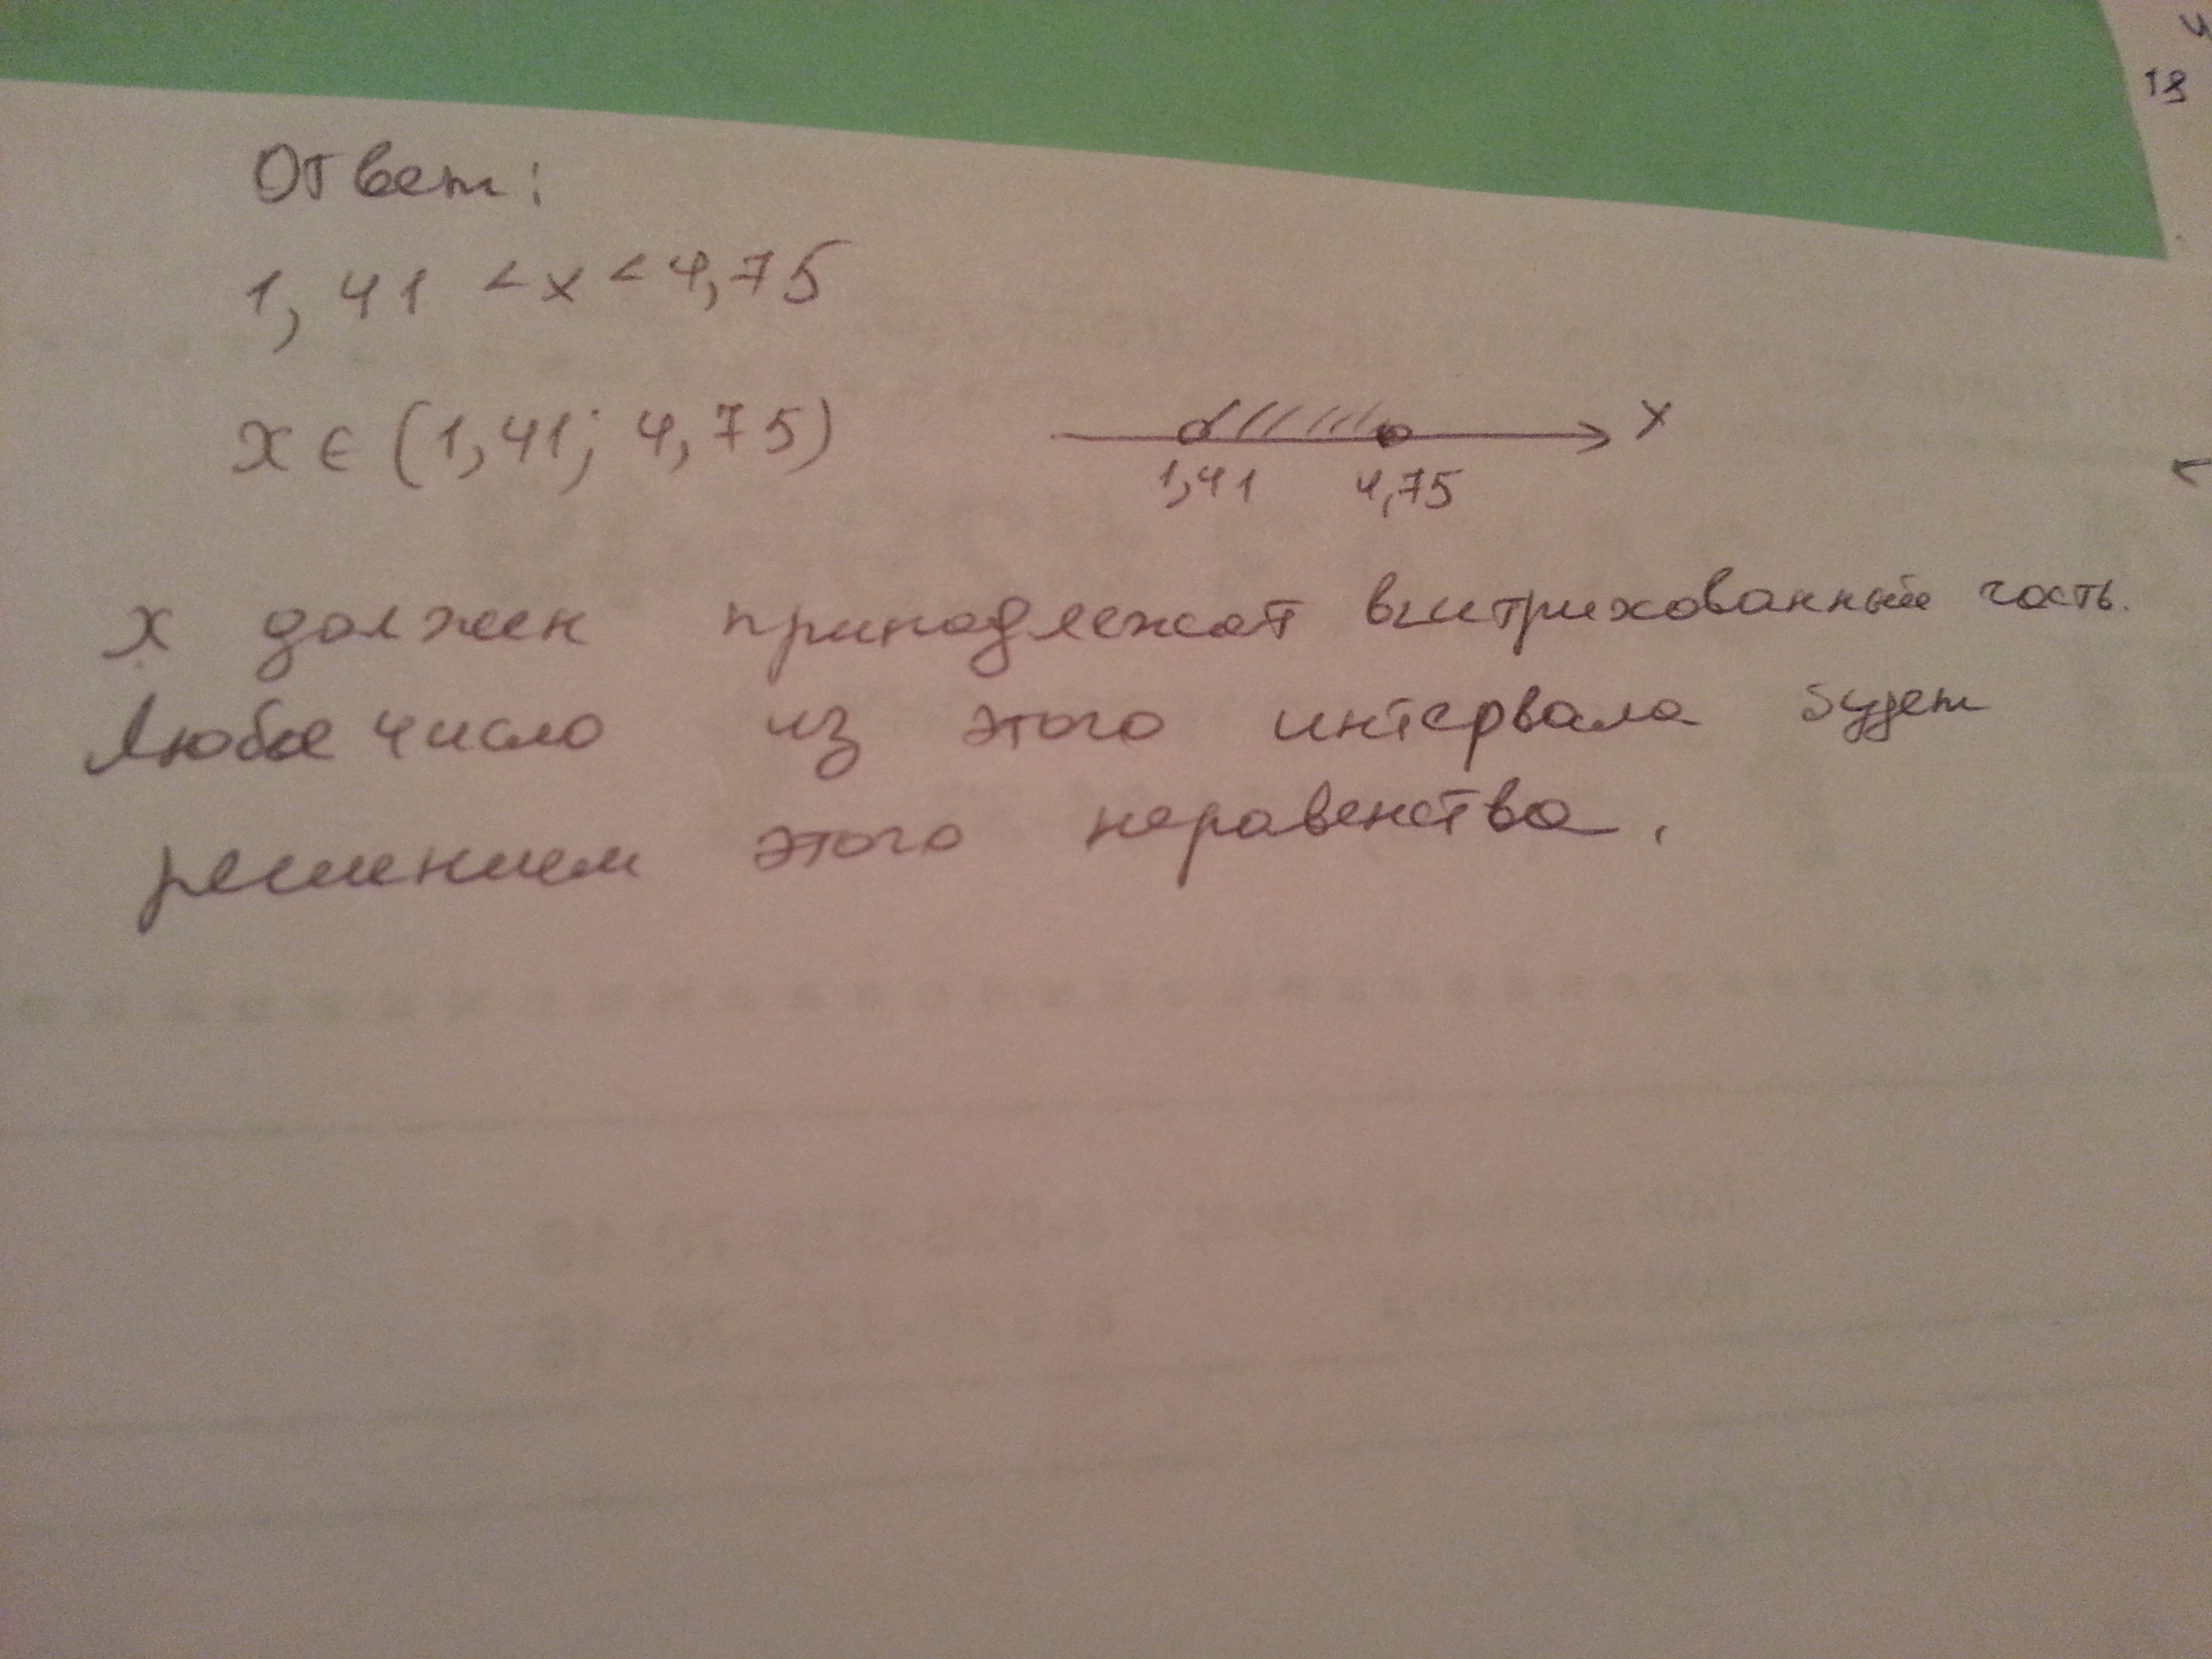 Ответ:
1,41 < x < 4,75
x ∈ (1,41; 4,75)
x
1,41 4,75
x должен принадлежат вштрихованный часть.
Любое число из этого интервала будет
решением этого неравенства.
18